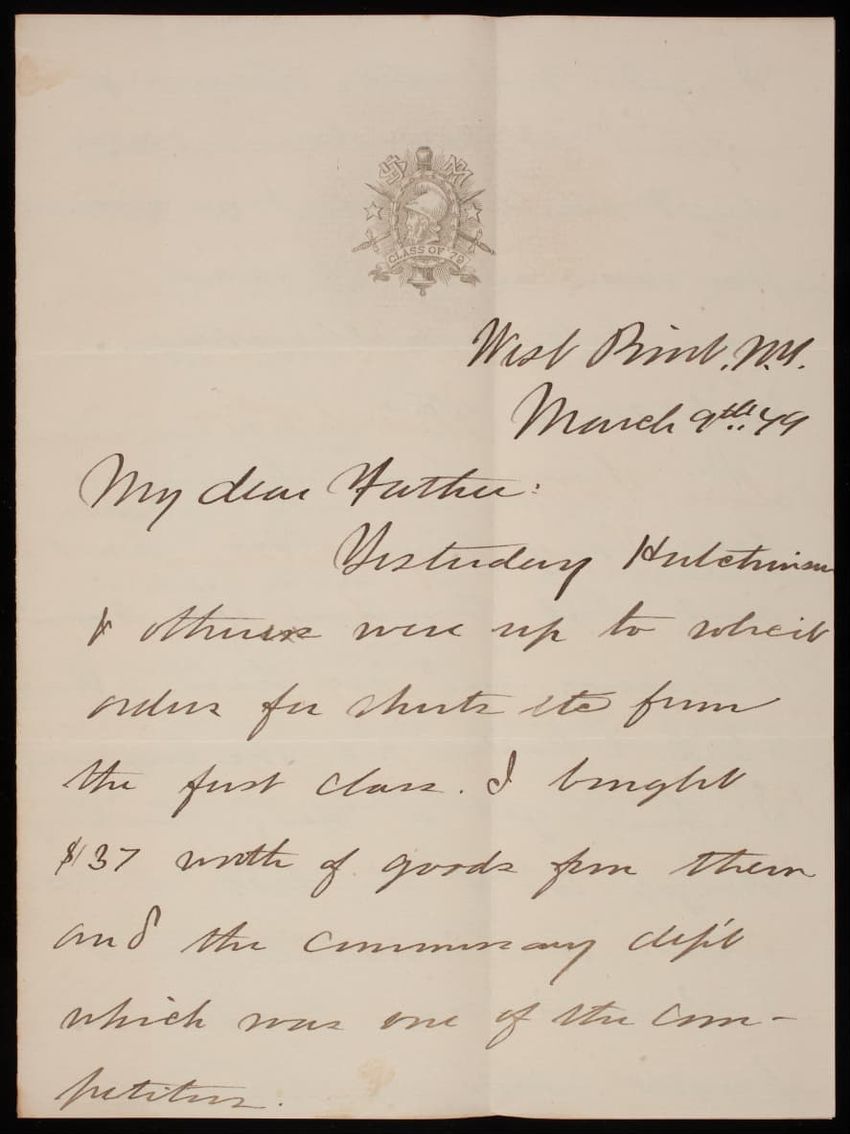 US MA
CLASS OF '79
West Point, N.Y.
March 9th '79
My dear Father:
Yesterday Hutchinson
& others were up to solicit
orders for shirts etc from
the first class. I bought
$37 worth of goods from them
and the commissary dep't
which was one of the com-
petitors.